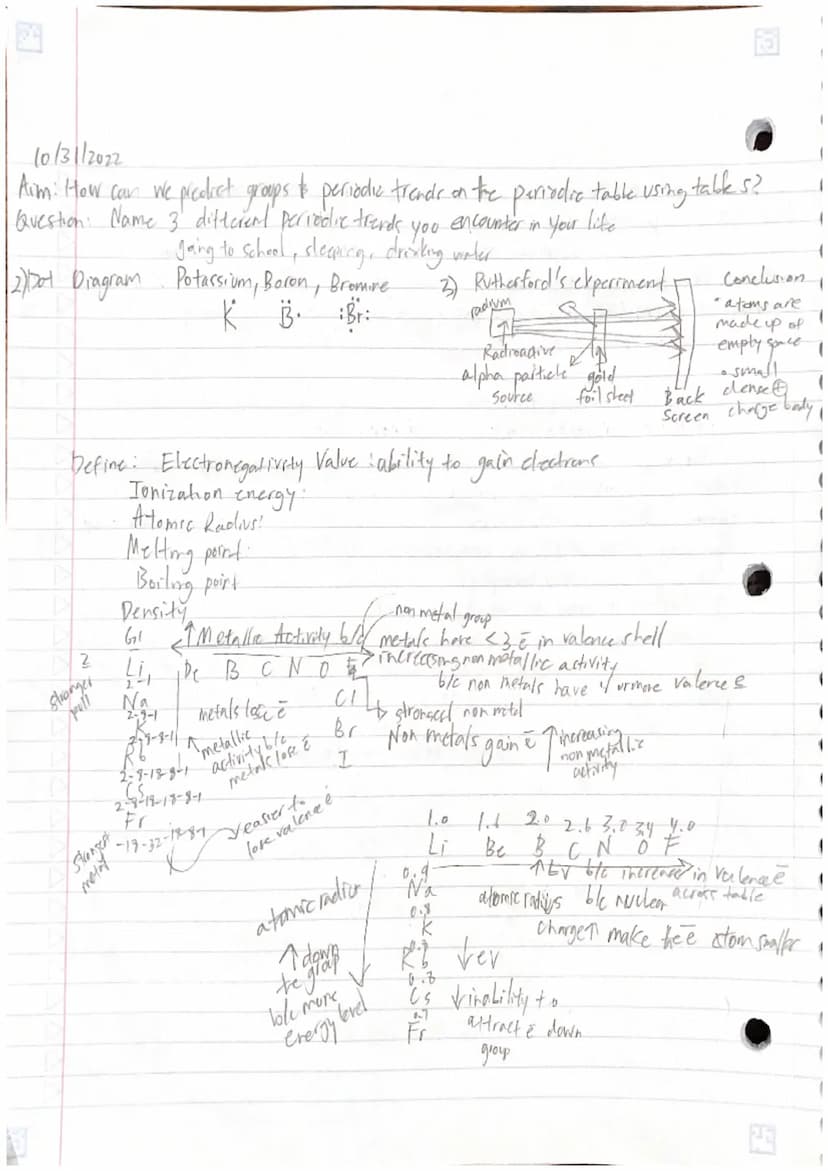 10/31/2022
Aim: How can we predict groups & periodic trends on the periodic table using table s?
Question: Name 3 different periodic trends you encounter in your life
going to school, sleeping, drinking water
2) Dot Diagram Potassium, Boron, Bromine
K B Br
3) Rutherford's experiment
radium
Radioactive
alpha particle
source
gold
foil sheet
Back
Screen
Conclusion
• atoms are
made up of
empty space
• small
dense ⊕
charge body
Define: Electronegativity Value: ability to gain electrons
Ionization energy:
Atomic Radius:
Melting point:
Boiling point
Density
G1
↑ Metallic Activity b/c
metals have <3 e̅ in valence shell
non metal group
Li B C N O F
2-1
increasing non metallic activity
b/c non metals have 4 or more valence e̅
2
stronger
pull
Na
2-8-1
K
2-8-8-1
Rb
2-8-18-8-1
Cs
2-8-18-18-8-1
Fr
-18-32-18-8-1
strongest
metal
metals lose e̅
↑ metallic
activity b/c
metals lose e̅
easier to
lose valence e̅
Cl
Br
I
strongest non metal
Non metals gain e̅
↑ increasing
non metallic
activity
1.0 1.6 2.0 2.6 3.0 3.4 4.0
Li Be B C N O F
↑ EV b/c increase in valence e̅
across table
0.9
Na
0.8
K
Rb
Cs
0.7
Fr
atomic radius b/c nuclear
charge↑ make the e̅ atom smaller
↓ ev
↓ inability to
attract e̅ down
group
atomic radius
↑ down
the group
b/c more
energy level